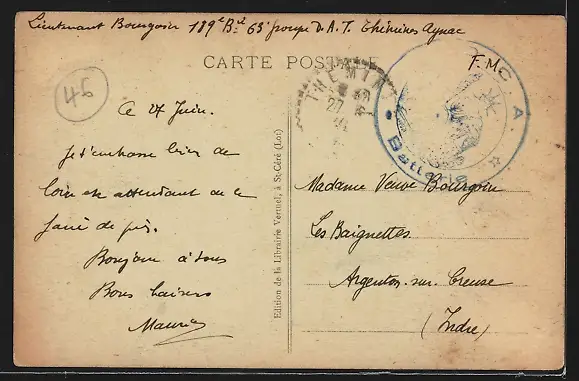 Lieutenant Bourgoin 189e Bie 63e groupe D.A.T. Thémines Aynac
CARTE POSTALE
F.M.C.A.
Batterie
THEMINES
27
46
Ce 27 Juin.
Je t'embrasse bien de
loin en attendant de le
faire de près.
Bonjour à tous
Bons baisers
Maurice
Edition de la Librairie Vertuel, à St-Céré (Lot)
Madame Veuve Bourgoin
Les Baignettes
Argenton-sur-Creuse
(Indre)